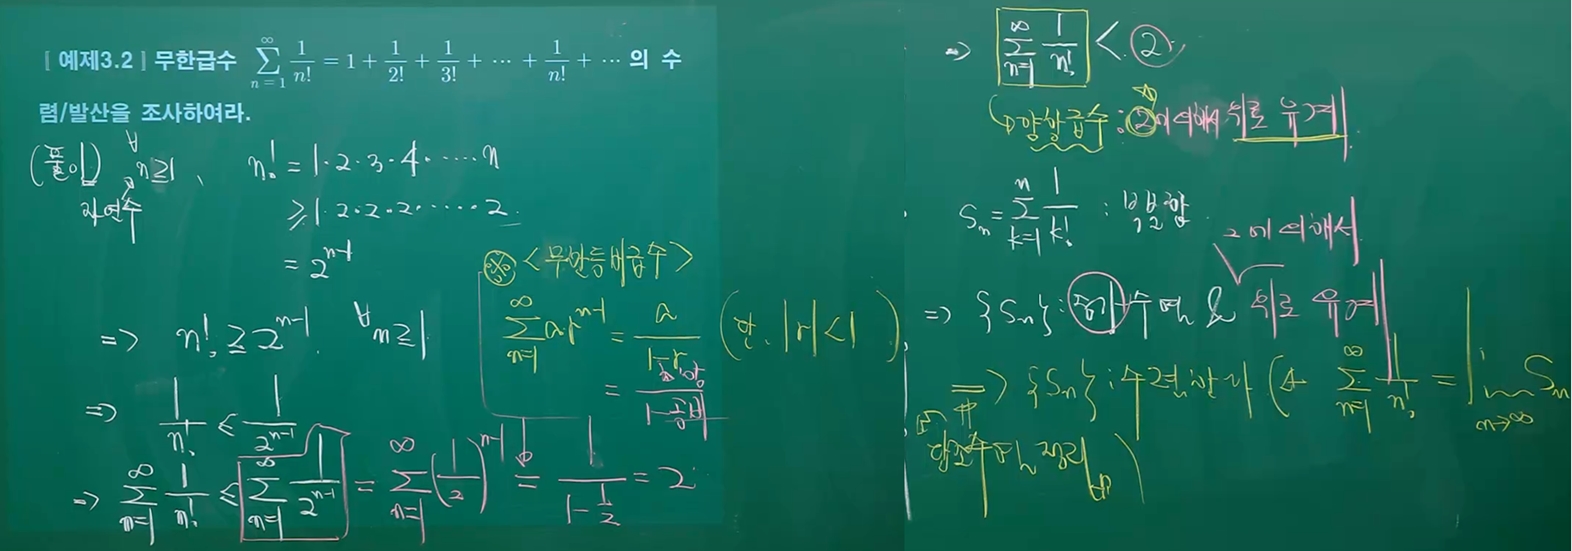 [예제3.2] 무한급수 \sum_{n=1}^{\infty} \frac{1}{n!} = 1 + \frac{1}{2!} + \frac{1}{3!} + \cdots + \frac{1}{n!} + \cdots 의 수
렴/발산을 조사하여라.
(풀이) ∀n≥1, n! = 1·2·3·4·⋯·n
자연수 ≥ 1·2·2·2·⋯·2
= 2^{n-1}
⇒ n! ≥ 2^{n-1}, ∀n≥1
⇒ \frac{1}{n!} ≤ \frac{1}{2^{n-1}}
⇒ \sum_{n=1}^{∞} \frac{1}{n!} ≤ \sum_{n=1}^{∞} \frac{1}{2^{n-1}} = \sum_{n=1}^{∞} (\frac{1}{2})^{n-1} = \frac{1}{1-\frac{1}{2}} = 2
※ <무한등비급수>
\sum_{n=1}^{∞} a·r^{n-1} = \frac{a}{1-r} (단, |r|<1)
= \frac{초항}{1-공비}
⇒ \sum_{n=1}^{∞} \frac{1}{n!} < 2
양항급수 : 2에 의해서 위로 유계
S_n = \sum_{k=1}^{n} \frac{1}{k!} : 부분합
2에 의해서
⇒ {S_n} : 증가수열 & 위로 유계
⇒ {S_n} : 수렴한다 (← \sum_{n=1}^{∞} \frac{1}{n!} = \lim_{n→∞} S_n
단조수렴정리 )